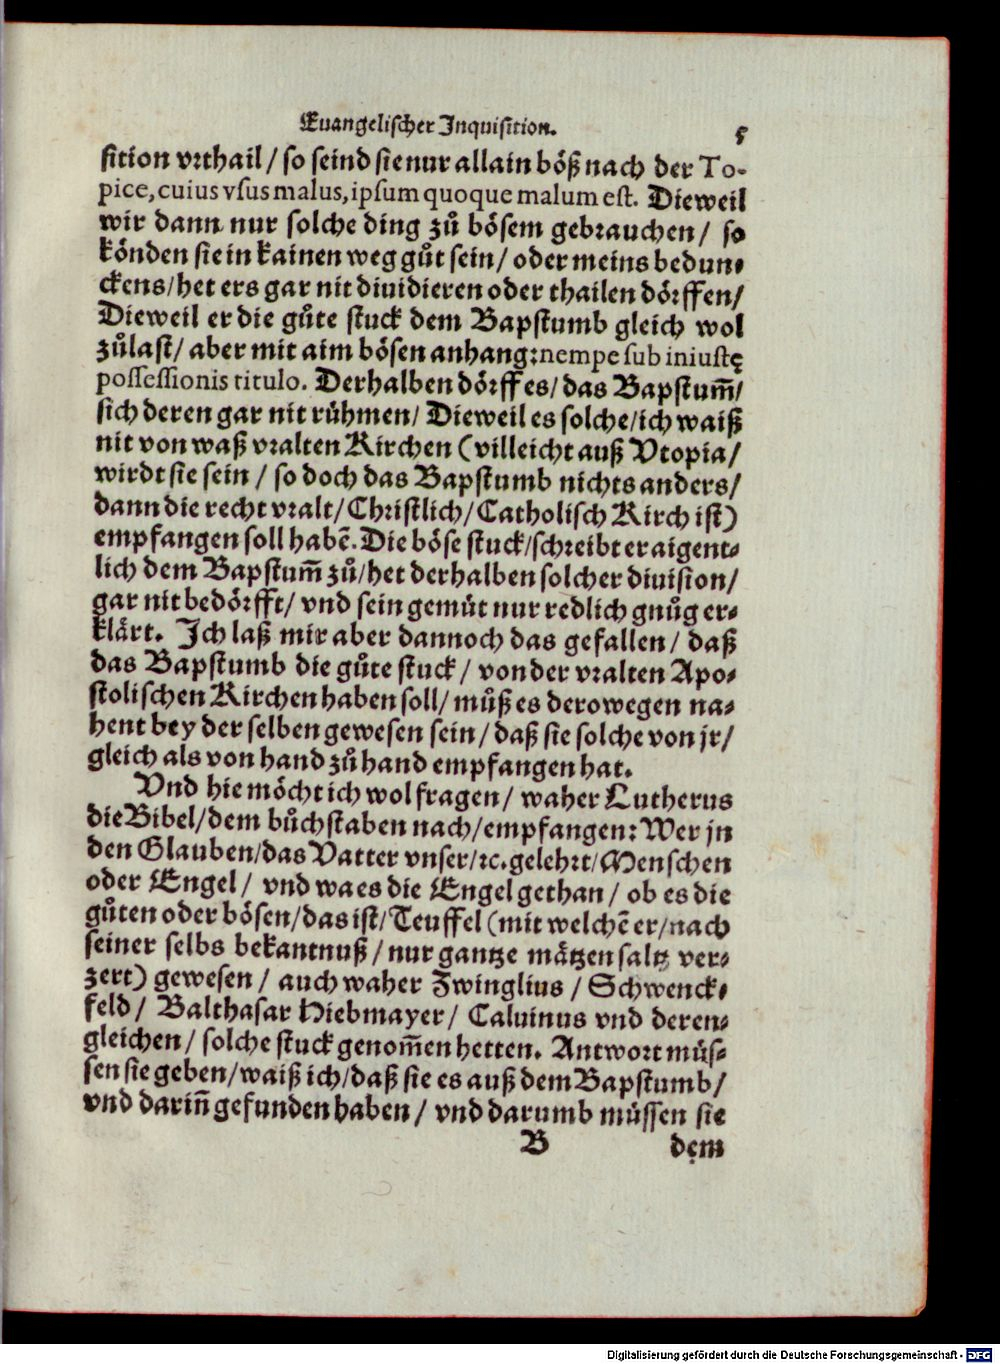 Euangelischer Inquisition. 5
sition vrthail / so seind sie nur allain böß nach der To-
pice, cuius vsus malus, ipsum quoque malum est. Dieweil
wir dann nur solche ding zů bösem gebrauchen / so
könden sie in kainen weg gůt sein / oder meins bedun-
ckens / het ers gar nit diuidieren oder thailen dörffen /
Dieweil er die gůte stuck dem Bapstumb gleich wol
zůlast / aber mit aim bösen anhang: nempe sub iniustę
possessionis titulo. Derhalben dörff es / das Bapstum̃ /
sich deren gar nit rühmen / Dieweil es solche / ich waiß
nit von waß vralten Kirchen (villeicht auß Vtopia /
wirdt sie sein / so doch das Bapstumb nichts anders /
dann die recht vralt / Christlich / Catholisch Kirch ist)
empfangen soll habẽ. Die böse stuck / schreibt er aigent-
lich dem Bapstum̃ zů / het derhalben solcher diuision /
gar nit bedörfft / vnd sein gemüt nur redlich gnůg er-
klärt. Ich laß mir aber dannoch das gefallen / daß
das Bapstumb die gůte stuck / von der vralten Apo-
stolischen Kirchen haben soll / můß es derowegen na-
hent bey der selben gewesen sein / daß sie solche von jr /
gleich als von hand zů hand empfangen hat.
Vnd hie möcht ich wol fragen / waher Lutherus
die Bibel / dem bůchstaben nach / empfangen: Wer jn
den Glauben / das Vatter vnser / ꝛc. gelehrt / Menschen
oder Engel / vnd wa es die Engel gethan / ob es die
gůten oder bösen / das ist / Teuffel (mit welchẽ er / nach
seiner selbs bekantnuß / nur gantze mätzen saltz ver-
zert) gewesen / auch waher Zwinglius / Schwenck-
feld / Balthasar Hiebmayer / Caluinus vnd deren-
gleichen / solche stuck genom̃en hetten. Antwort müs-
sen sie geben / waiß ich / daß sie es auß dem Bapstumb /
vnd dariñ gefunden haben / vnd darumb müssen sie
B dem
Digitalisierung gefördert durch die Deutsche Forschungsgemeinschaft - DFG